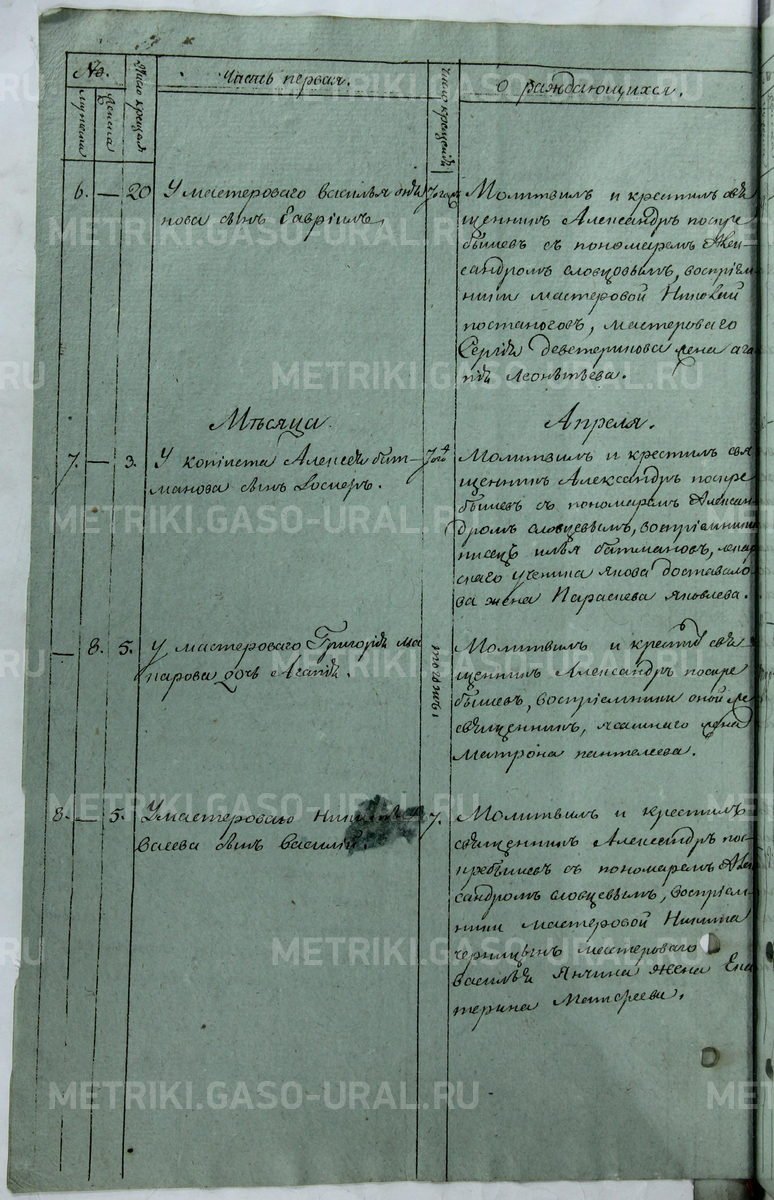 №.
мужеска
женска
число крещенія
Часть первая.
число крещенія
о раждающихся.
6. — 20
У мастероваго василья
нова сынъ Гавріилъ,
Молитвилъ и крестилъ свя
щенникъ Александръ поскре
бышевъ съ пономаремъ Алек-
сандромъ словцовымъ, воспріем-
ники мастеровой Николай
постаноговъ, мастероваго
Сергія деветерикова жена ага
пія Леонтьева.
Мѣсяца
Апреля.
7. — 3.
У копіиста Алексея бат-
манова сынъ
Молитвилъ и крестилъ свя
щенникъ Александръ поскре
бышевъ съ пономаремъ Алексан
дромъ словцевымъ, воспріемники
писецъ илья батмановъ, лекар
скаго ученика якова доставало
ва жена Параскева яковлева.
— 8. 5.
у мастероваго Григорія ма
карова дочь Агапія.
Молитвилъ и крестилъ свя
щенникъ Александръ поскре
бышевъ, воспріемники оной же
священникъ, жена
Матрона пантелеева.
8. — 5.
У мастероваго
сынъ василій.
7.
Молитвилъ и крестилъ
священникъ Александръ пос-
кребышевъ съ пономаремъ Алек
сандромъ словцевымъ, воспріем-
ники мастеровой Никита
черницынъ мастероваго
василья Янчина жена Ека
терина Матфеева.
METRIKI.GASO-URAL.RU